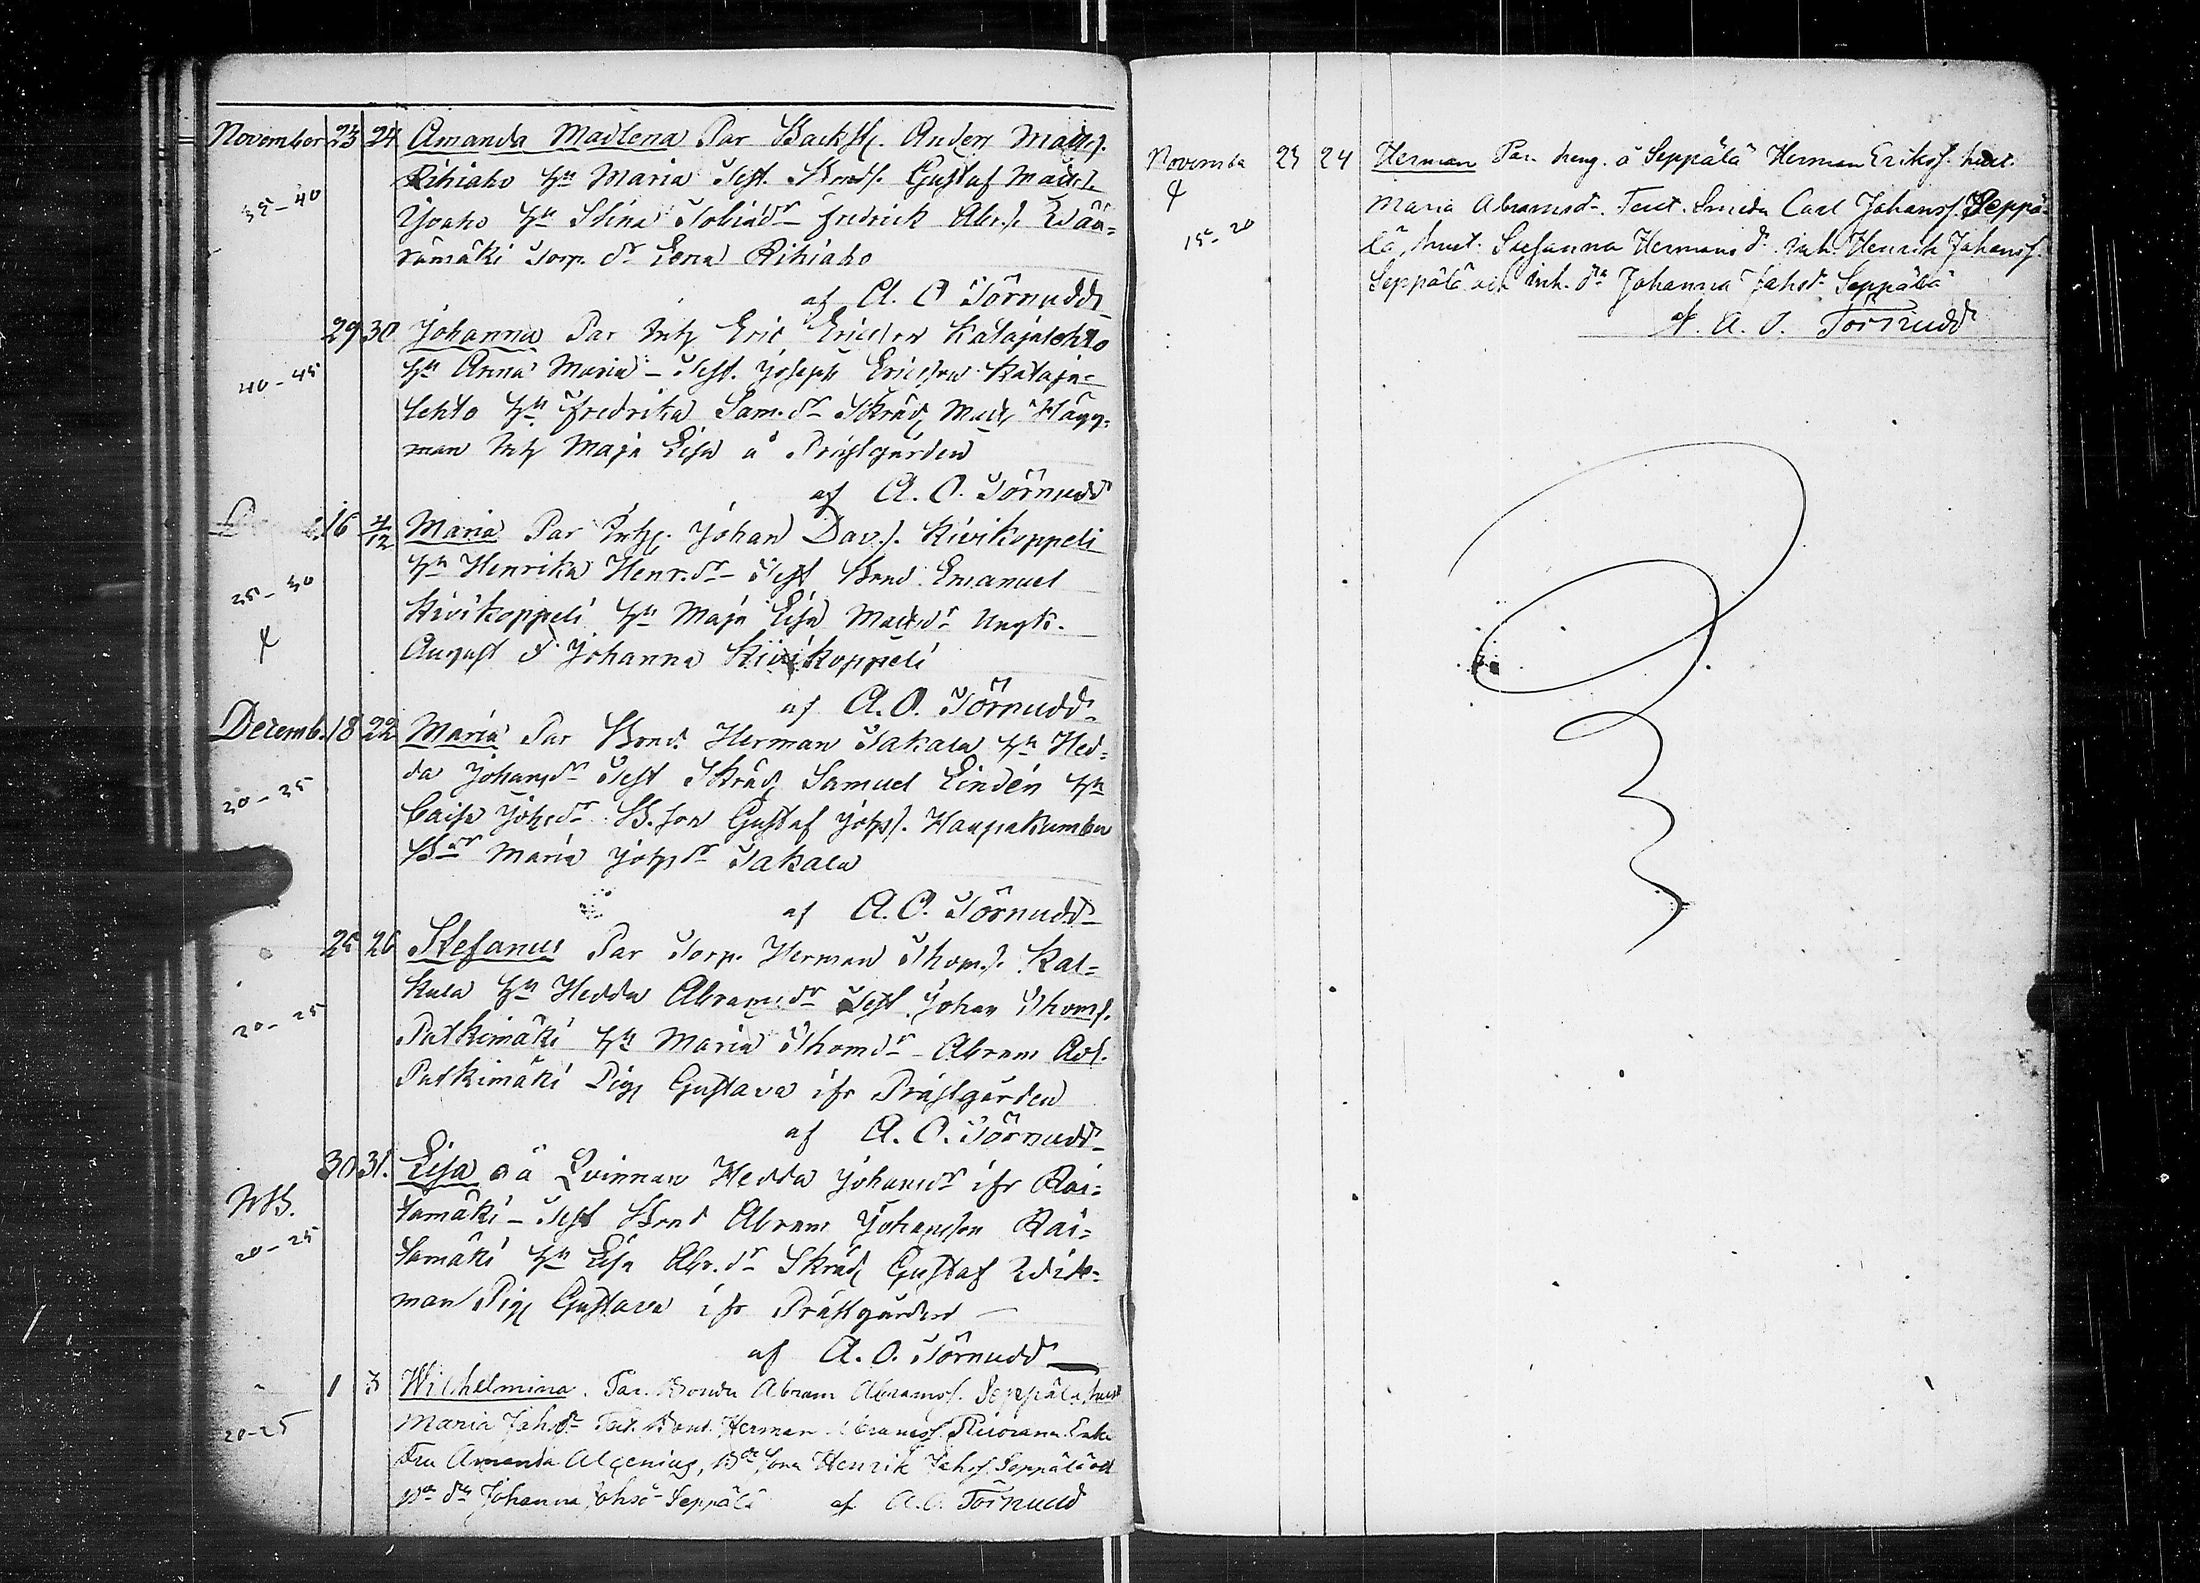 November 23 24 Amanda Madlena Par Backst. Anders Matts.
35-40 Rihiaho hu Maria Test. Bonds. Gustaf Matts.
Yoaho hu Stina Tobiadr Fredrick Abr.s.
rämäki Torp. dr Lena Rihiaho
af A. O. Törnudd
29 30 Johanna Par Inh Eric Ericsson Katajalehto
40-45 hu Anna Maria - Test. Joseph Ericsson Kataja=
lehto hu Fredrika Sam.dr Skräd Hägg=
man Inh Maja Lisa å Prästgården
af A. O. Törnudd
16 4/12 Maria Par Inh. Johan Dav.s. Kivikoppeli
25-30 hu Henrika Henr.dr Test Bond Emanuel
Kivikoppeli hu Maja Lisa Matsdr Ungk.
August & Johanna Kivikoppeli
af A. O. Törnudd
Decemb. 18 22 Maria Par Bond. Herman Takala hu Hed=
da Johansdr Test Skräd Samuel Lindén hu
20-25 Caisa Johsdr B.son Gustaf Johs. Haapakumbu
Bdr Maria Johsdr Takala
af A. O. Törnudd
25 26 Stefanus Par Torp. Herman Thom.s. Kal=
kula hu Hedda Abramsdr Test Johan Thoms.
20-25 Patkimäki hu Maria Thomdr Abram Ad.
Patkimäki Pig Gustava ifr Prästgården
af A. O. Törnudd
30 31. Lisa oä Qvinnan Hedda Johansdr ifr Rai=
NB. tamäki - Test Bond Abram Johansson Rai=
20-25 tamäki hu Lisa Abr.dr Skräd Gustaf Wik=
man Pig Gustava ifr Prästgården
af A. O. Törnudd
1 3 Wilhelmina. Par. Bonden Abram Abrams. Seppälä, hust
20-25 Maria Johsdr Test. Bond. Herman Abrams. Enke
Fru Amanda Alcenius, Bde Sonen Henrik Johs. Seppälä och
Bde dr Johanna Johsdr Seppälä af A. O. Törnudd
November 23 24 Herman Par. å Seppälä Herman Eriks. hust.
Maria Abramsd. Test. Smeden Carl Johans. Seppä=
15-20 lä, hust. Stefanna Hermansdr Inh. Henrik Johans.
Seppälä och Inh. dr Johanna Johsdr Seppälä
af A. O. Törnudd